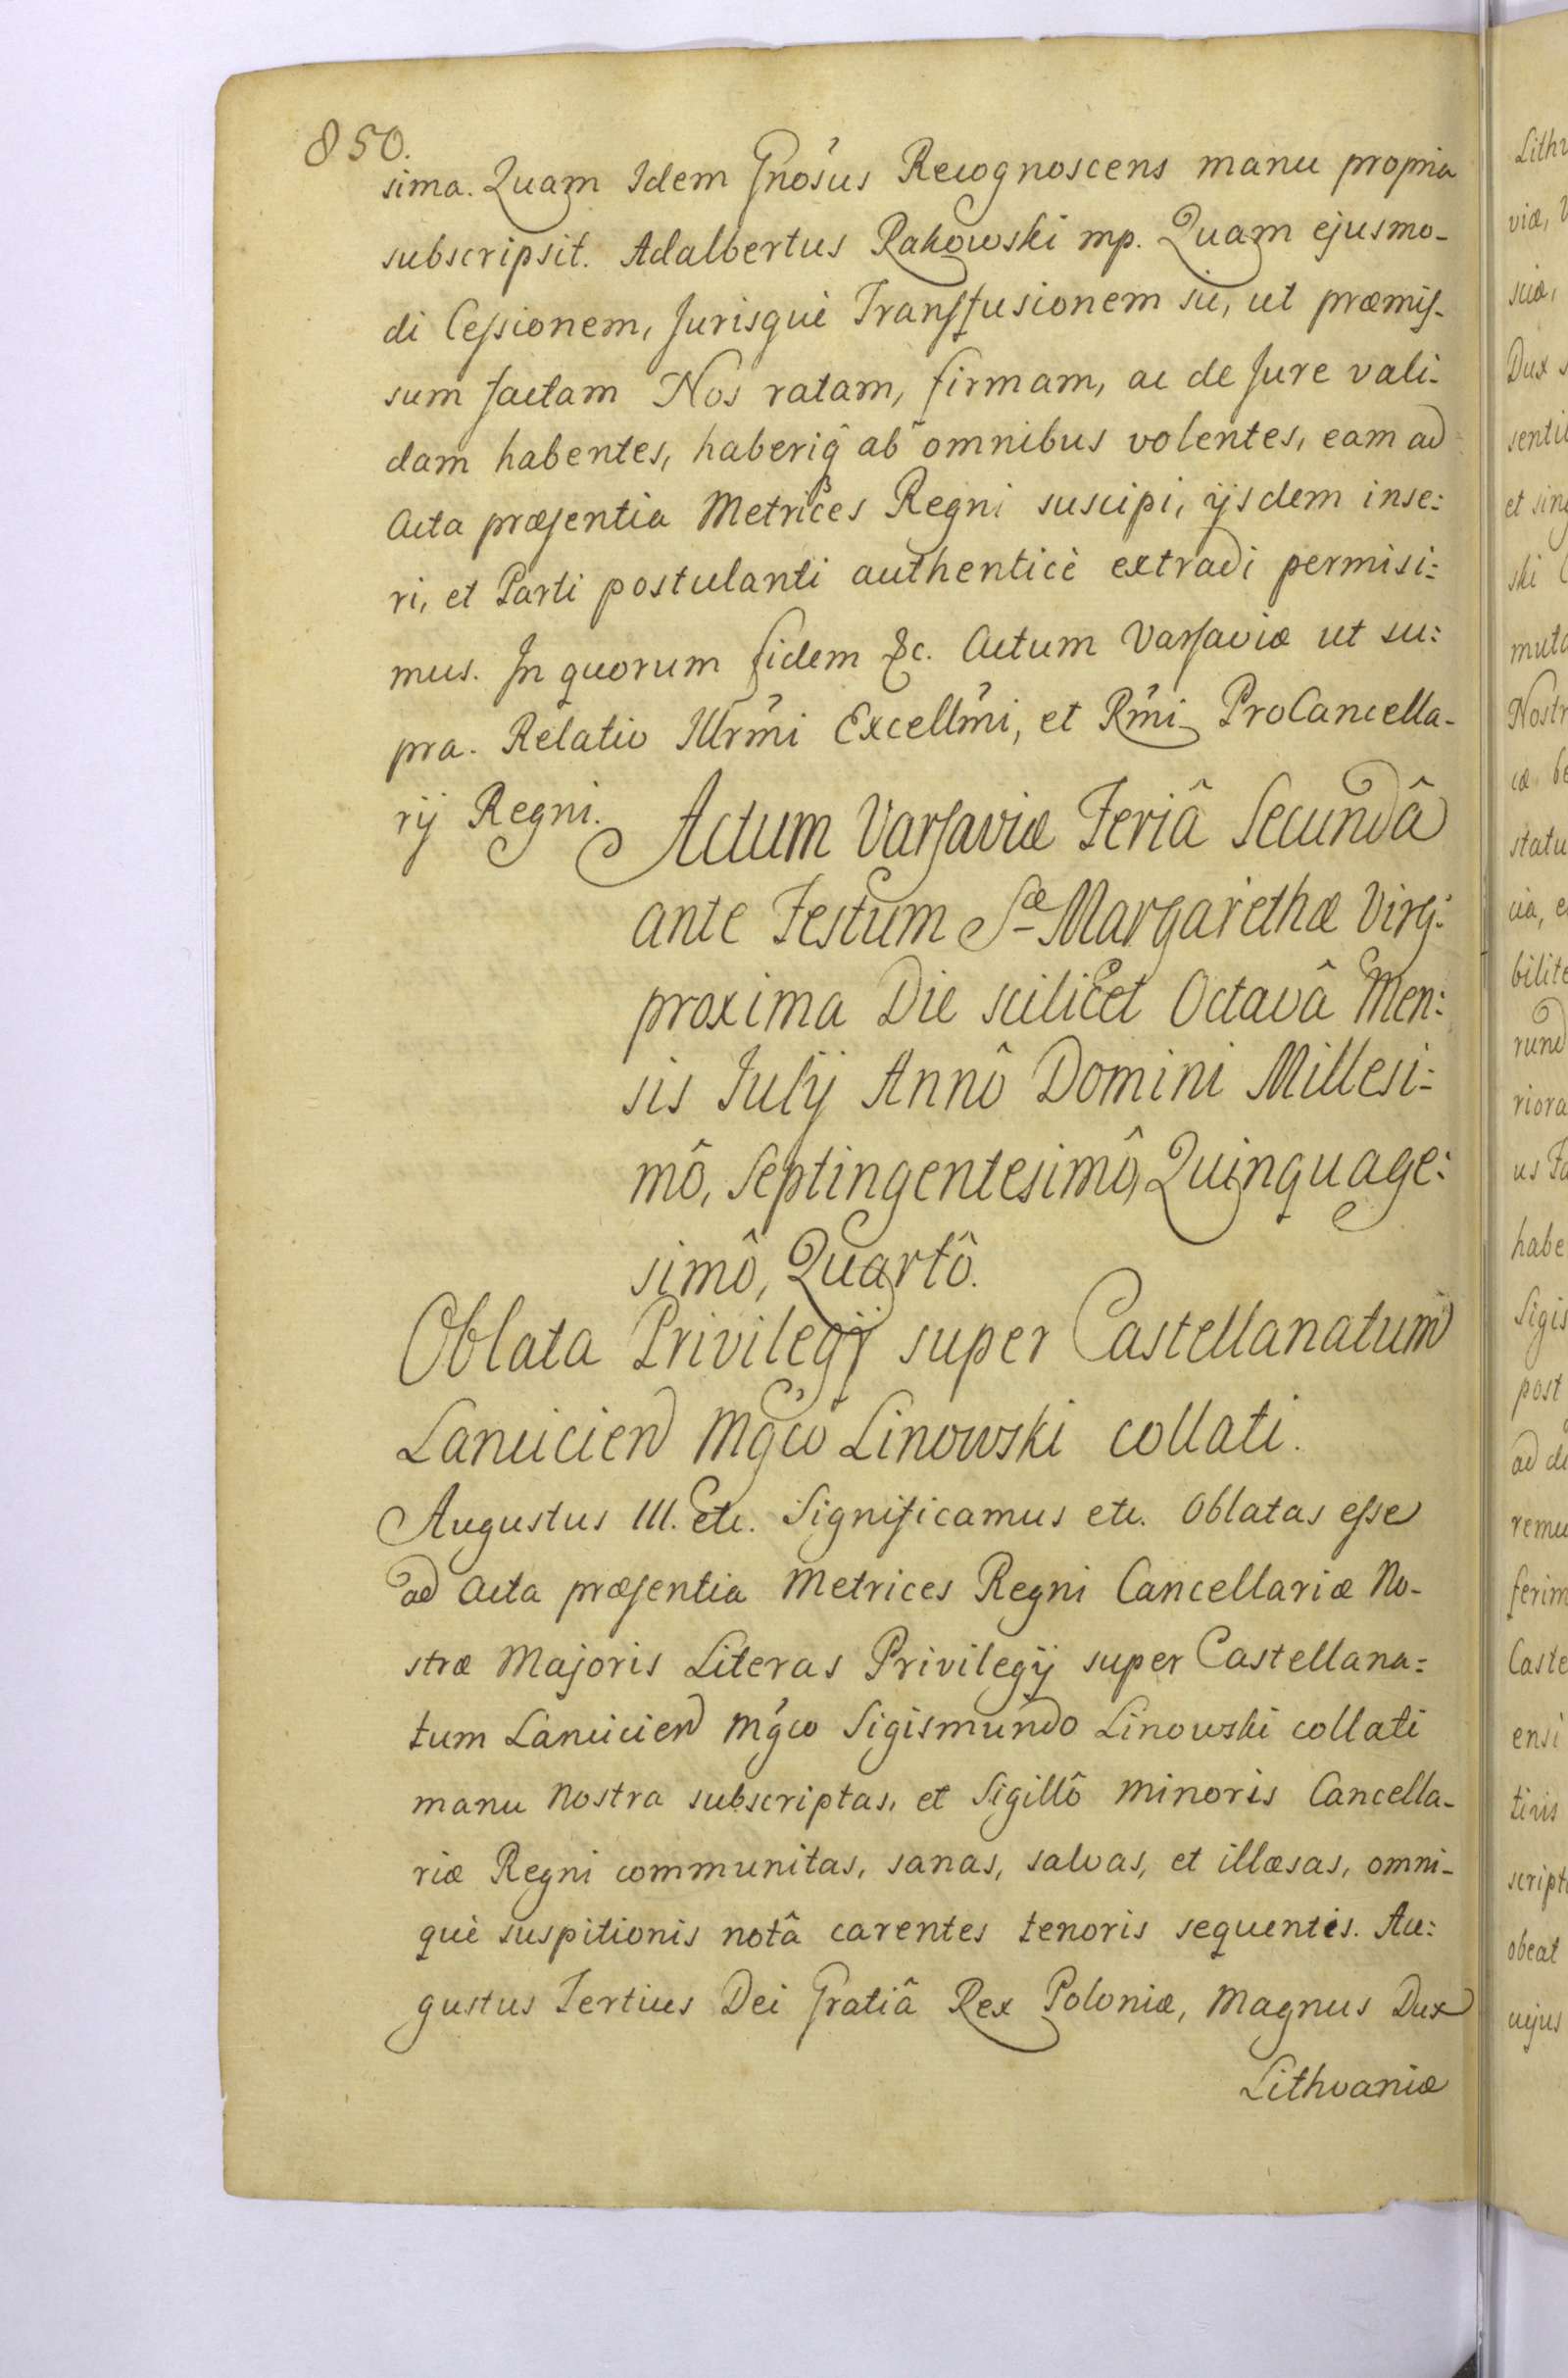 850.
sima. Quam Idem Gnosus Recognoscens manu propria
subscripsit. Adalbertus Rakowski mp. Quam ejusmo-
di Cessionem, Jurisquè Transfusionem sic, ut præmis-
sum factam Nos ratam, firmam, ac de Jure vali-
dam habentes, haberiq̂ ab omnibus volentes, eam ad
Acta præsentia Metrices Regni suscipi, ijsdem inse:
ri, et Parti postulanti authenticè extradi permisi:
mus. In quorum fidem &c. Actum Varsaviæ ut su:
pra. Relatio Illrmi Excellmi, et Rmi ProCancella-
rij Regni.
Actum Varsaviæ Feriâ Secundâ
ante Festum Sæ Margarethæ Virg:
proxima Die scilicet Octavâ Men:
sis Julij Annô Domini Millesi:
mô, Septingentesimô, Quinquage:
simô, Quartô.
Oblata Privilegij super Castellanatum
Lancicien Mgco Linowski collati.
Augustus III. etc. Significamus etc. Oblatas esse
ad Acta præsentia Metrices Regni Cancellariæ No-
stræ Majoris Literas Privilegij super Castellana:
tum Lancicien Mgco Sigismundo Linowski collati
manu Nostra subscriptas, et Sigillô Minoris Cancella-
riæ Regni communitas, sanas, salvas, et illæsas, omni-
què suspitionis notâ carentes tenoris sequentis. Au:
gustus Tertius Dei Gratiâ Rex Poloniæ, Magnus Dux
Lithvaniæ